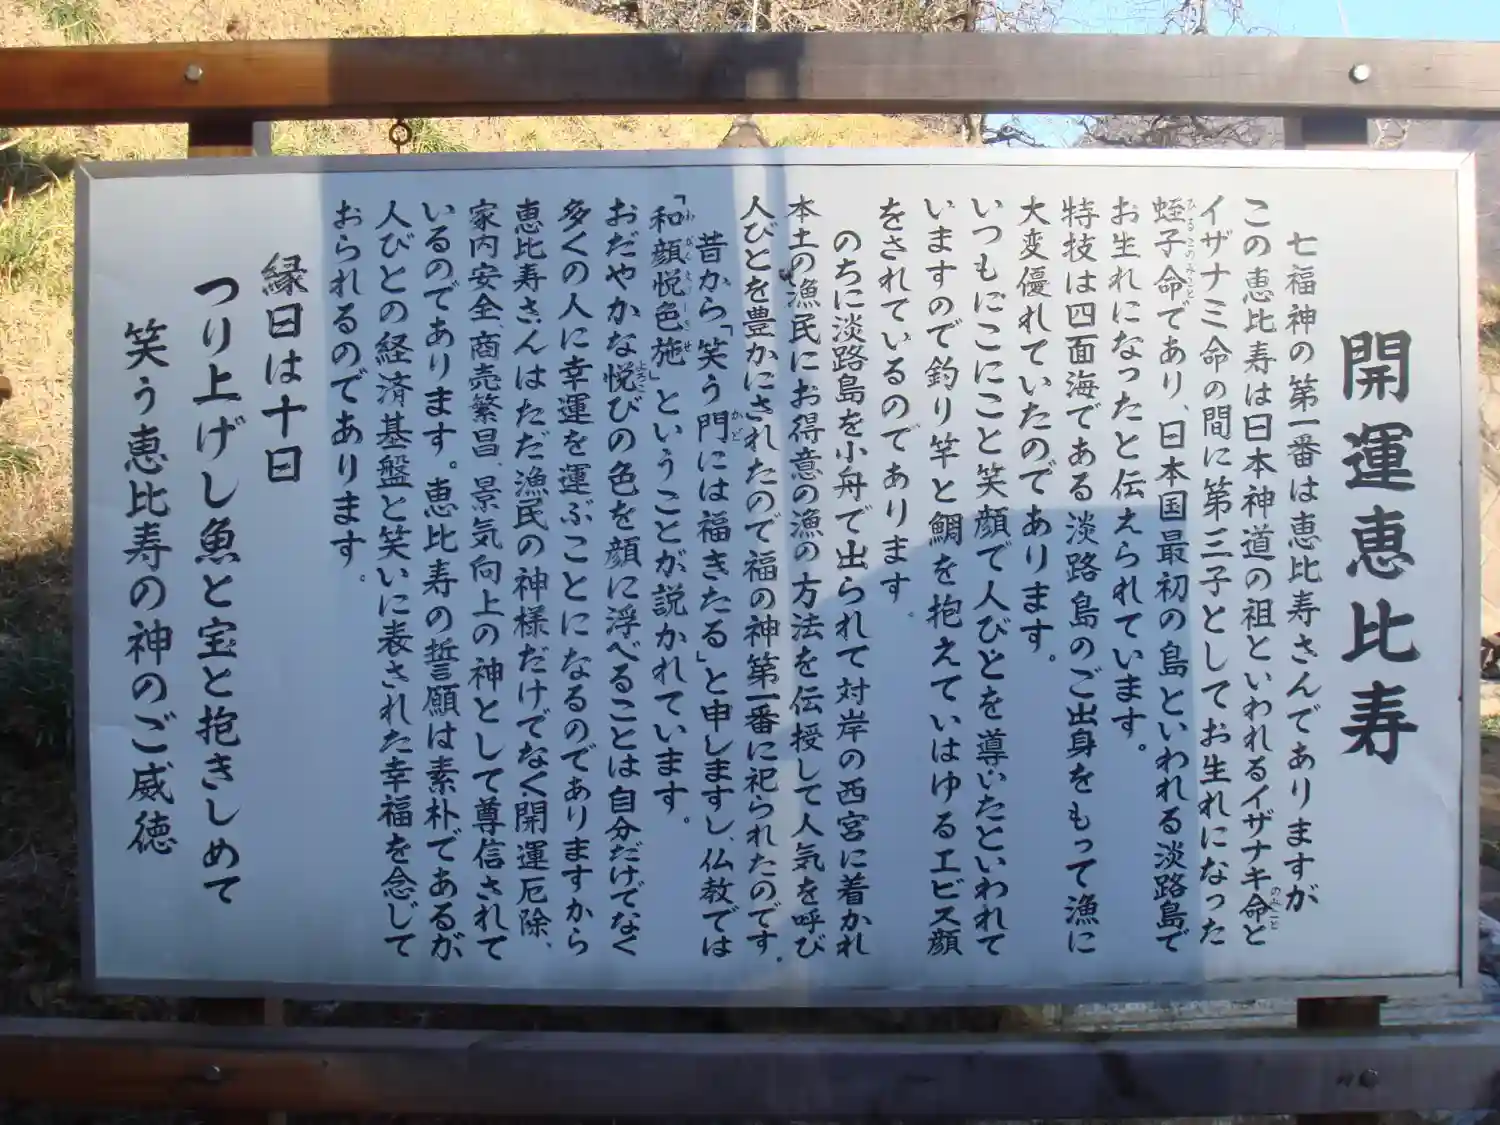 開運恵比寿
七福神の第一番は恵比寿さんでありますが
この恵比寿は日本神道の祖といわれるイザナキ命と
イザナミ命の間に第三子としてお生れになった
蛭子命であり、日本国最初の島といわれる淡路島で
お生れになったと伝えられています。
特技は四面海である淡路島のご出身をもって漁に
大変優れていたのであります。
いつもにこにこと笑顔で人びとを導いたといわれて
いますので釣り竿と鯛を抱えていはゆるエビス顔
をされているのであります。
のちに淡路島を小舟で出られて対岸の西宮に着かれ
本土の漁民にお得意の漁の方法を伝授して人気を呼び
人びとを豊かにされたので福の神第一番に祀られたのです。
昔から「笑う門には福きたる」と申しますし、仏教では
「和顔悦色施」ということが説かれています。
おだやかな悦びの色を顔に浮べることは自分だけでなく
多くの人に幸運を運ぶことになるのでありますから
恵比寿さんはただ漁民の神様だけでなく開運厄除、
家内安全、商売繁昌、景気向上の神として尊信されて
いるのであります。恵比寿の誓願は素朴であるが
人びとの経済基盤と笑いに表された幸福を念じて
おられるのであります。
縁日は十日
つり上げし魚と宝と抱きしめて
笑う恵比寿の神のご威徳